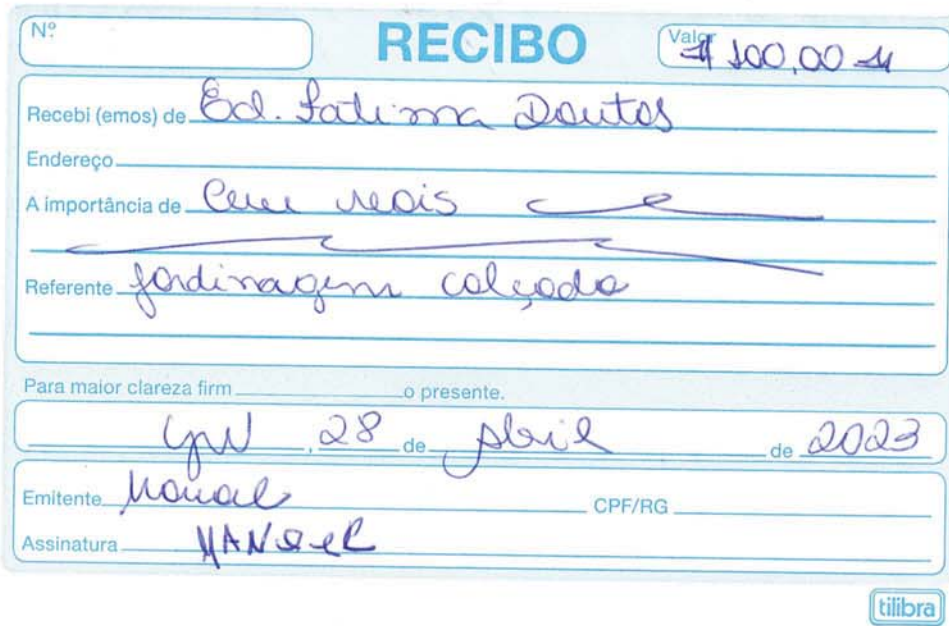 Nº RECIBO Valor # 100,00 #
Recebi (emos) de Ed. Fatima Dantas
Endereço
A importância de Cem reais
Referente Jardinagem calçada
Para maior clareza firm o presente.
GV, 28 de Abril de 2023
Emitente Manoel CPF/RG
Assinatura MANOEL
tilibra